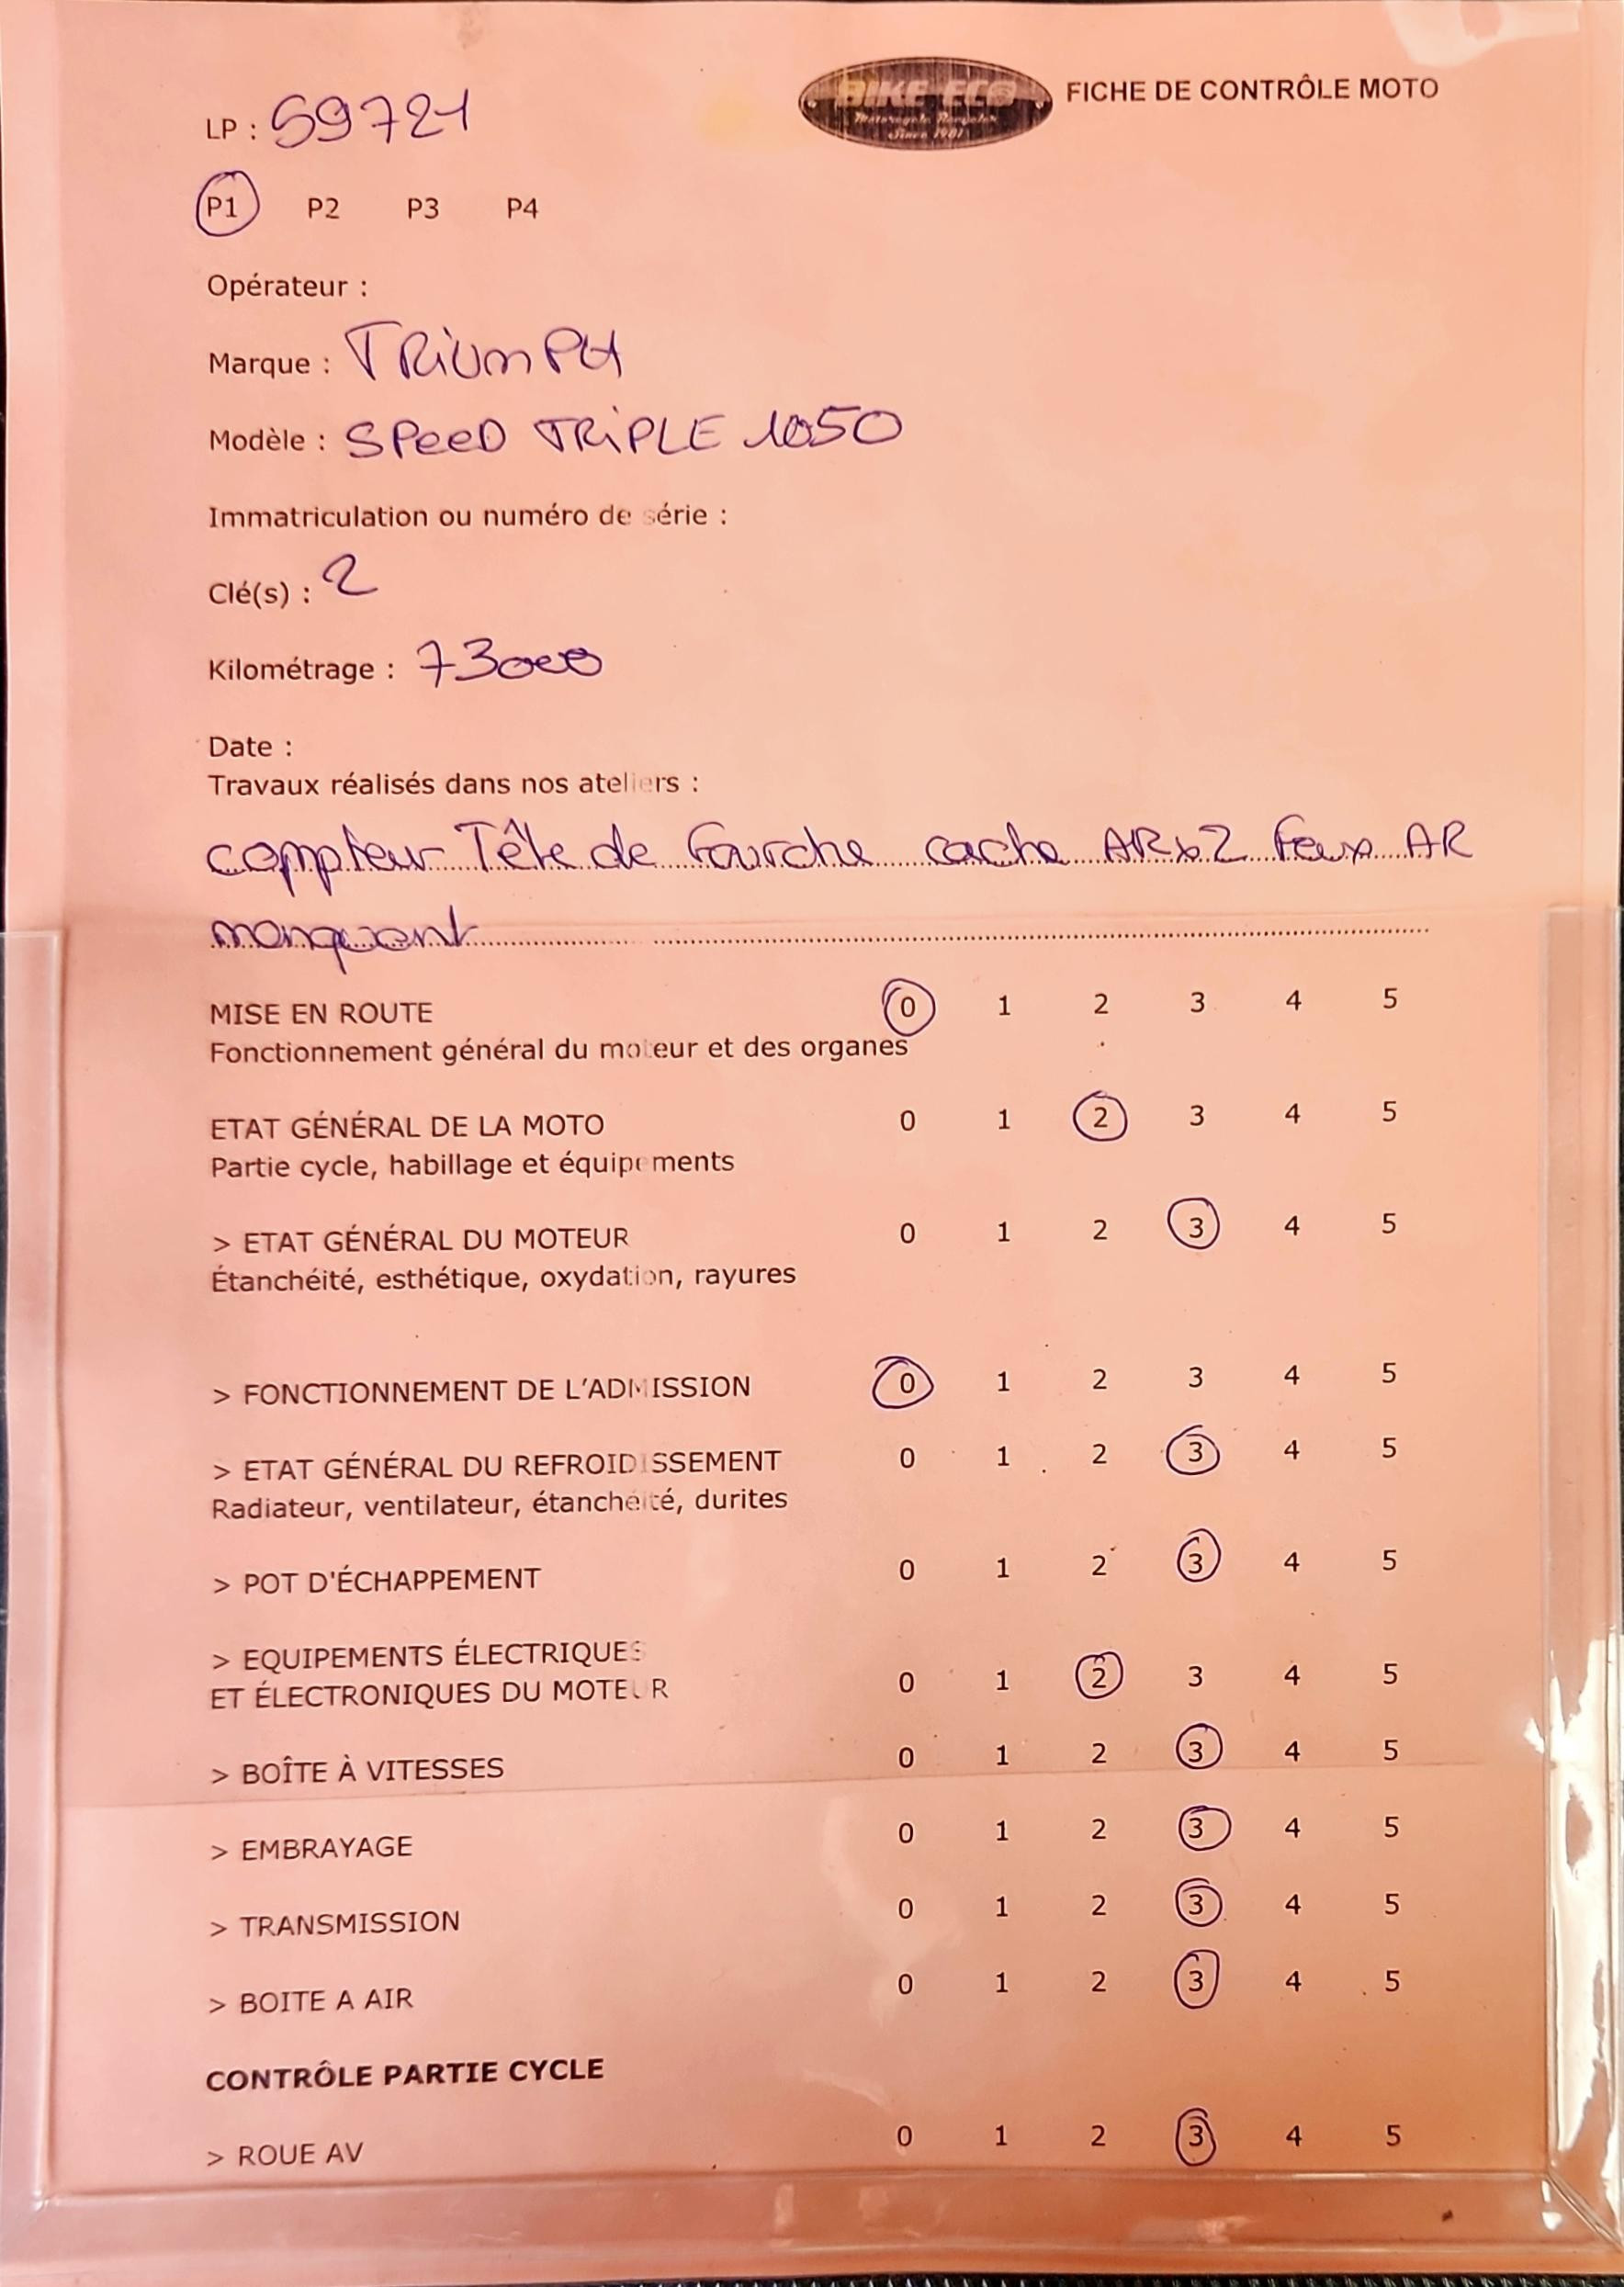 BIKE ECO
Motorcycle Recycler
Since 1981
FICHE DE CONTRÔLE MOTO
LP : 59721
P1 P2 P3 P4
Opérateur :
Marque : TRiUmPH
Modèle : SPeeD TRiPLE 1050
Immatriculation ou numéro de série :
Clé(s) : 2
Kilométrage : 73000
Date :
Travaux réalisés dans nos ateliers :
compteur Tête de Fourche cache ARx2 Feux AR
manquent
MISE EN ROUTE 0 1 2 3 4 5
Fonctionnement général du moteur et des organes
ETAT GÉNÉRAL DE LA MOTO 0 1 2 3 4 5
Partie cycle, habillage et équipements
> ETAT GÉNÉRAL DU MOTEUR 0 1 2 3 4 5
Étanchéité, esthétique, oxydation, rayures
> FONCTIONNEMENT DE L'ADMISSION 0 1 2 3 4 5
> ETAT GÉNÉRAL DU REFROIDISSEMENT 0 1 2 3 4 5
Radiateur, ventilateur, étanchéité, durites
> POT D'ÉCHAPPEMENT 0 1 2 3 4 5
> EQUIPEMENTS ÉLECTRIQUES
ET ÉLECTRONIQUES DU MOTEUR 0 1 2 3 4 5
> BOÎTE À VITESSES 0 1 2 3 4 5
> EMBRAYAGE 0 1 2 3 4 5
> TRANSMISSION 0 1 2 3 4 5
> BOITE A AIR 0 1 2 3 4 5
CONTRÔLE PARTIE CYCLE
> ROUE AV 0 1 2 3 4 5